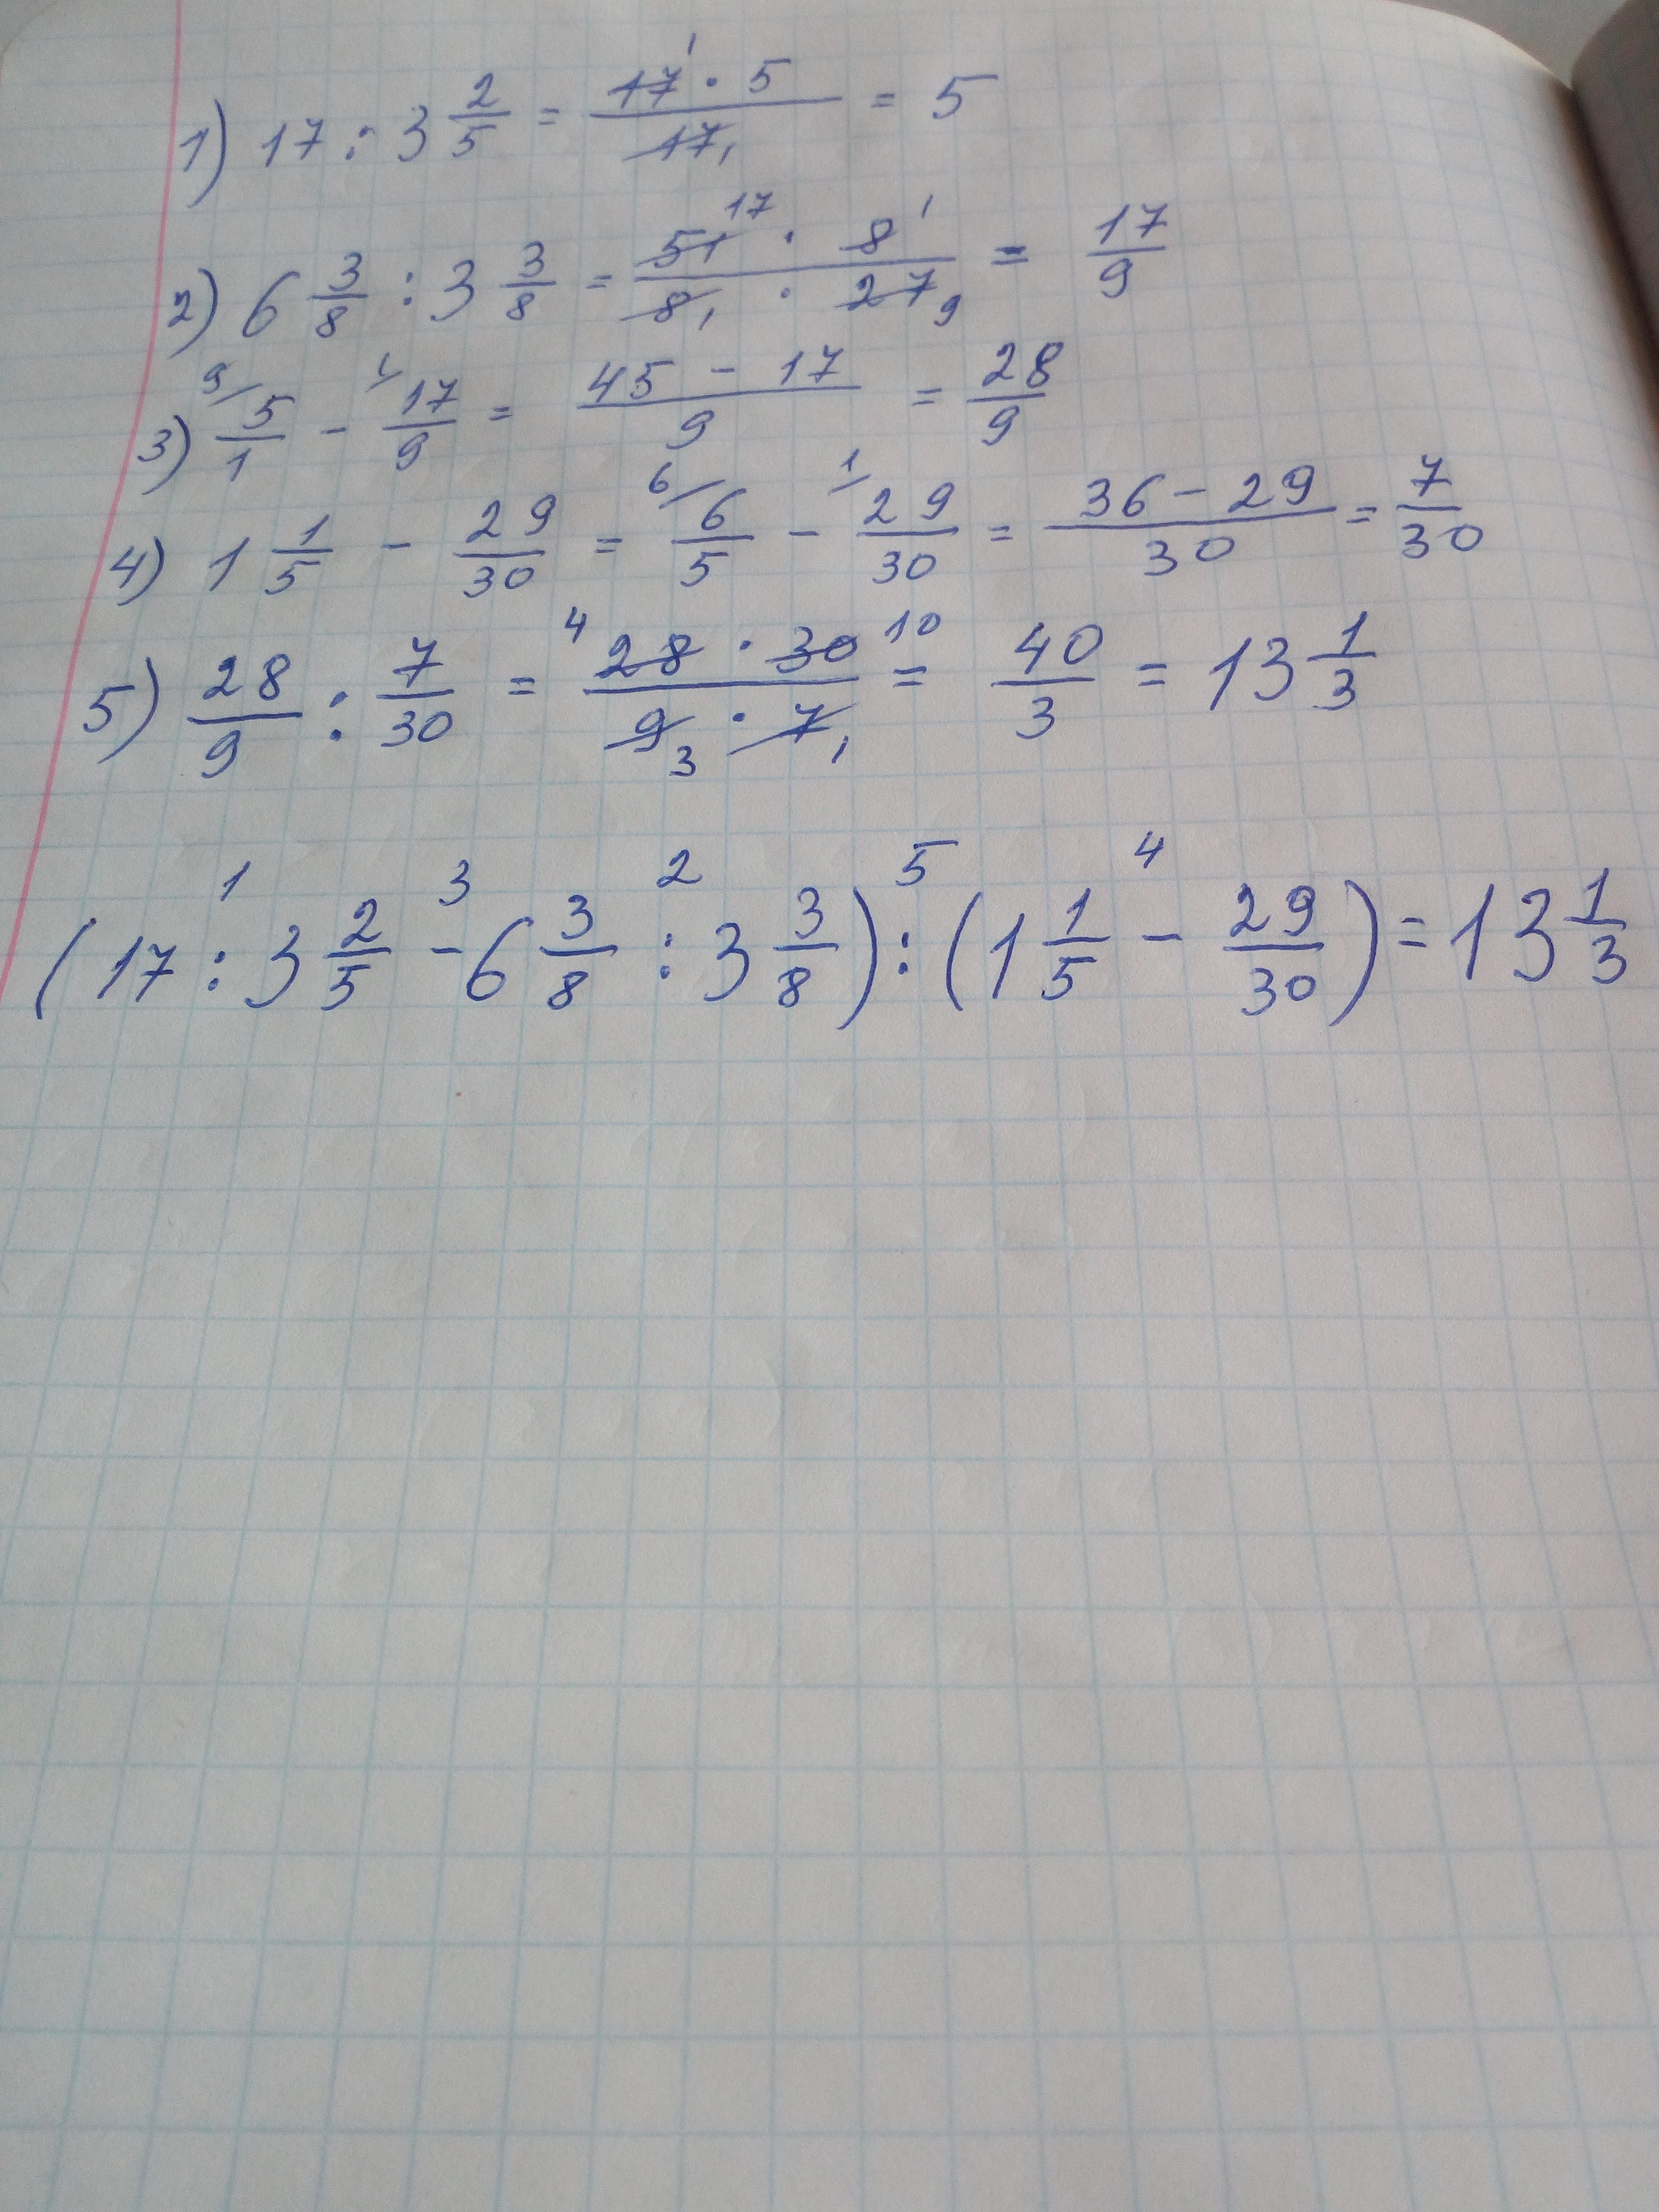 1) 17 : 3 2/5 = 17 · 5 / 17 = 5
2) 6 3/8 : 3 3/8 = 51 · 8 / 8 · 27 = 17/9
3) 5/1 - 17/9 = 45 - 17 / 9 = 28/9
4) 1 1/5 - 29/30 = 6/5 - 29/30 = 36 - 29 / 30 = 7/30
5) 28/9 : 7/30 = 28 · 30 / 9 · 7 = 40/3 = 13 1/3
1 3 2 5 4
(17 : 3 2/5 - 6 3/8 : 3 3/8) : (1 1/5 - 29/30) = 13 1/3